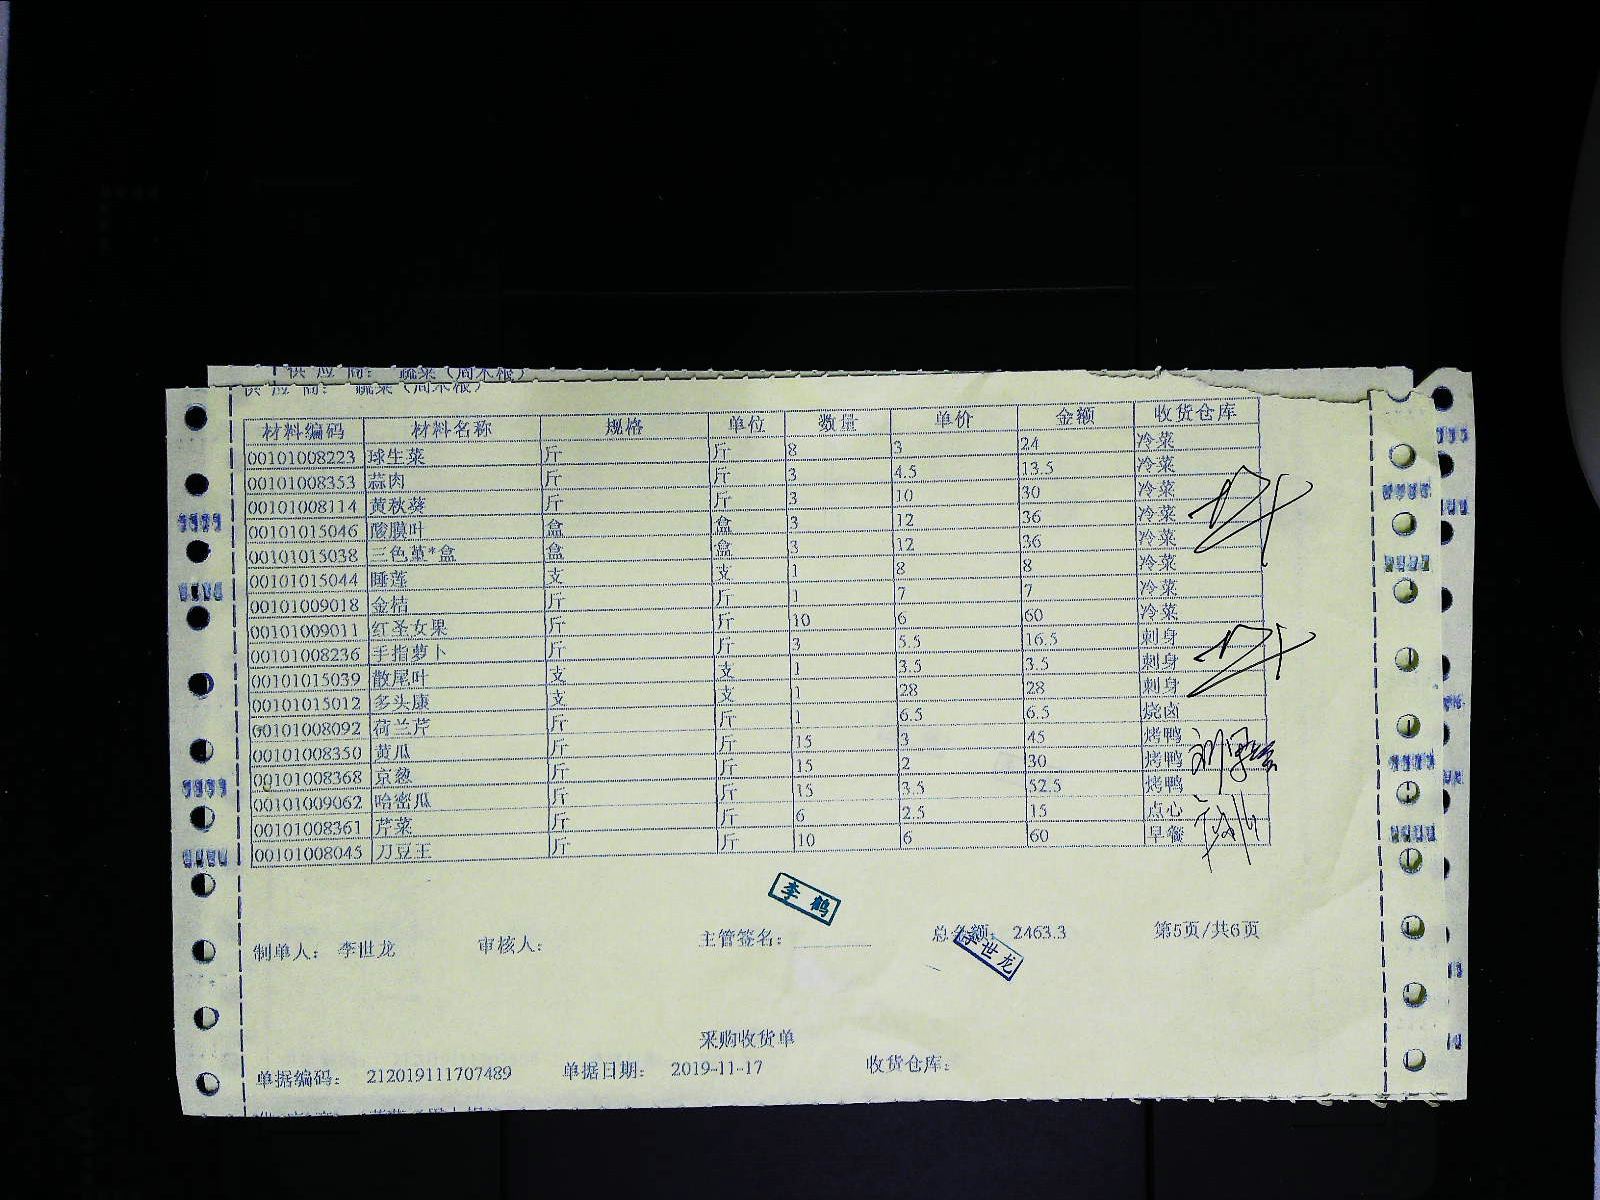 供 应 商： 蔬菜（周木根）
供 应 商： 蔬菜（周木根）
材料编码 材料名称 规格 单位 数量 单价 金额 收货仓库
00101008223 球生菜 斤 斤 8 3 24 冷菜
00101008353 蒜肉 斤 斤 3 4.5 13.5 冷菜
00101008114 黄秋葵 斤 斤 3 10 30 冷菜
00101015046 酸膜叶 盒 盒 3 12 36 冷菜
00101013038 三色堇*盒 盒 盒 3 12 36 冷菜
00101015044 睡莲 支 支 1 8 8 冷菜
00101009018 金桔 斤 斤 1 7 7 冷菜
00101009011 红圣女果 斤 斤 10 6 60 冷菜
00101008236 手指萝卜 斤 斤 3 5.5 16.5 刺身
00101015039 散尾叶 支 支 1 3.5 3.5 刺身
00101015012 多头康 支 支 1 28 28 刺身
00101008092 荷兰芹 斤 斤 1 6.5 6.5 烧卤
00101008350 黄瓜 斤 斤 15 3 45 烤鸭
00101008368 京葱 斤 斤 15 2 30 烤鸭
00101009062 哈密瓜 斤 斤 15 3.5 52.5 烤鸭
00101008361 芹菜 斤 斤 6 2.5 15 点心
00101008045 刀豆王 斤 斤 10 6 60 早餐
李鹤
制单人： 李世龙 审核人： 主管签名： 总金额： 2463.3 第5页/共6页
李世龙
采购收货单
单据编码： 212019111707489 单据日期： 2019-11-17 收货仓库：